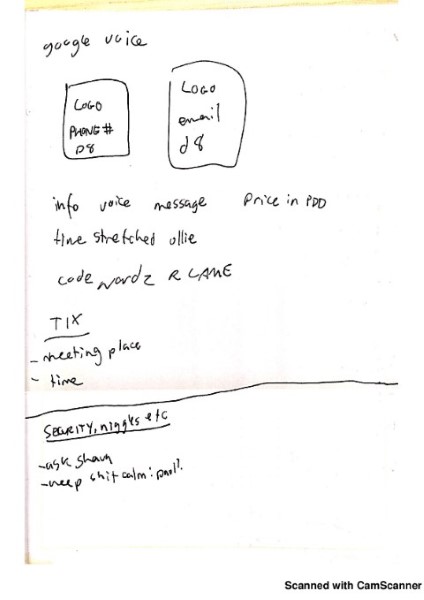 google voice
LOGO
PHONE #
D8
LOGO
email
d8
info voice message Price in PDD
time stretched ollie
code wordz R LAME
TIX
- meeting place
- time
SECURITY, etc
- ask shawn
- keep shit calm :
Scanned with CamScanner